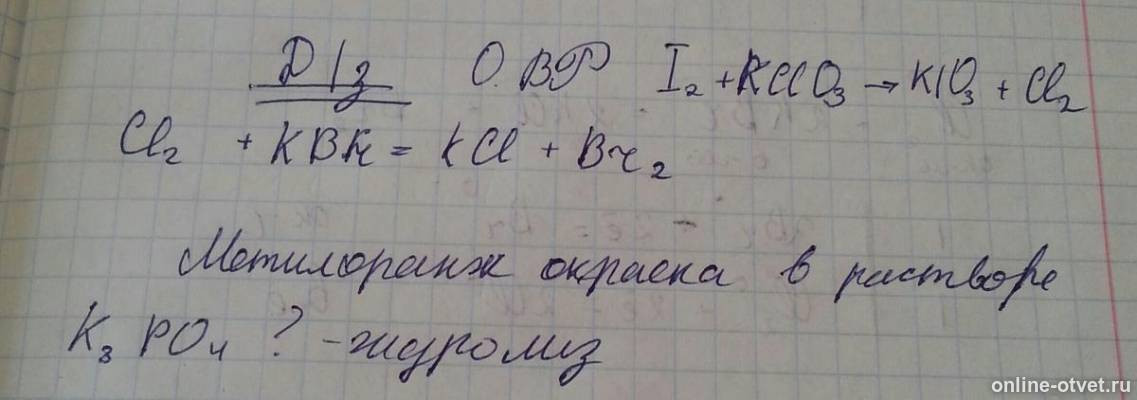 Д/з О.ВР I₂ + KClO₃ → KIO₃ + Cl₂
Cl₂ + KBr = KCl + Br₂
Метилоранж окраска в растворе
K₃PO₄ ? - гидролиз
online-otvet.ru